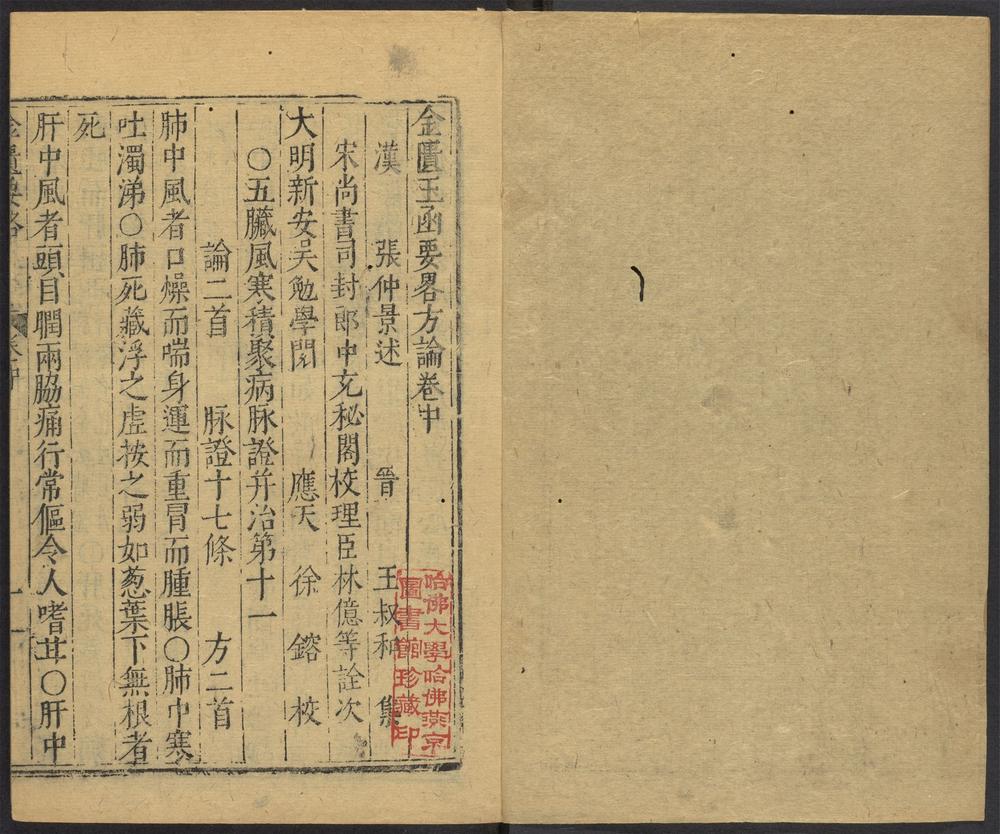 金匱玉函要畧方論卷中
漢 張仲景述 晉 王叔和 集
宋尚書司封郎中充秘閣校理臣林億等詮次
大明新安吳勉學閱 應天 徐 鎔 校
〇五臟風寒積聚病脉證并治第十一
論二首 脉證十七條 方二首
肺中風者口燥而喘身運而重冒而腫脹〇肺中寒
吐濁涕〇肺死藏浮之虛按之弱如葱葉下無根者
死
肝中風者頭目瞤兩脇痛行常傴令人嗜甘〇肝中
金匱要略 卷中 一
哈佛大學哈佛燕京
圖書館珍藏印